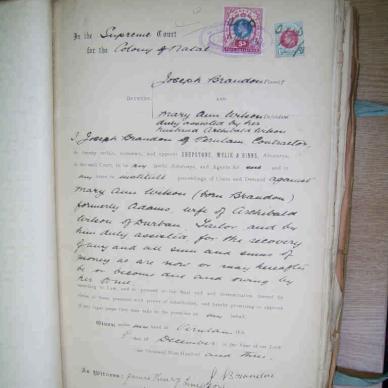 In the Supreme Court
for the Colony of Natal
Joseph Brandon Plaintiff
BETWEEN AND
Mary Ann Wilson
duly assisted by her
husband Archibald Wilson
I, Joseph Brandon of Verulam Contractor,
do hereby nominate, constitute, and appoint SHEPSTONE, WYLIE & BINNS, Attorneys,
of the said Court, to be my lawful Attorneys, and Agents for me and in
my name to institute proceedings of Claim and Demand against
Mary Ann Wilson (born Brandon)
formerly Adams, wife of Archibald
Wilson of Durban, Tailor and by
him duly assisted for the recovery
of any and all sum and sums of
money as are now or may hereafter
be or become due and owing by
her to me.
according to Law, and to proceed to the final end and determination thereof by
GIVEN under my hand at Verulam this
day of December in the Year of our Lord
One Thousand Nine Hundred and three.
As Witness: James Henry
J Brandon